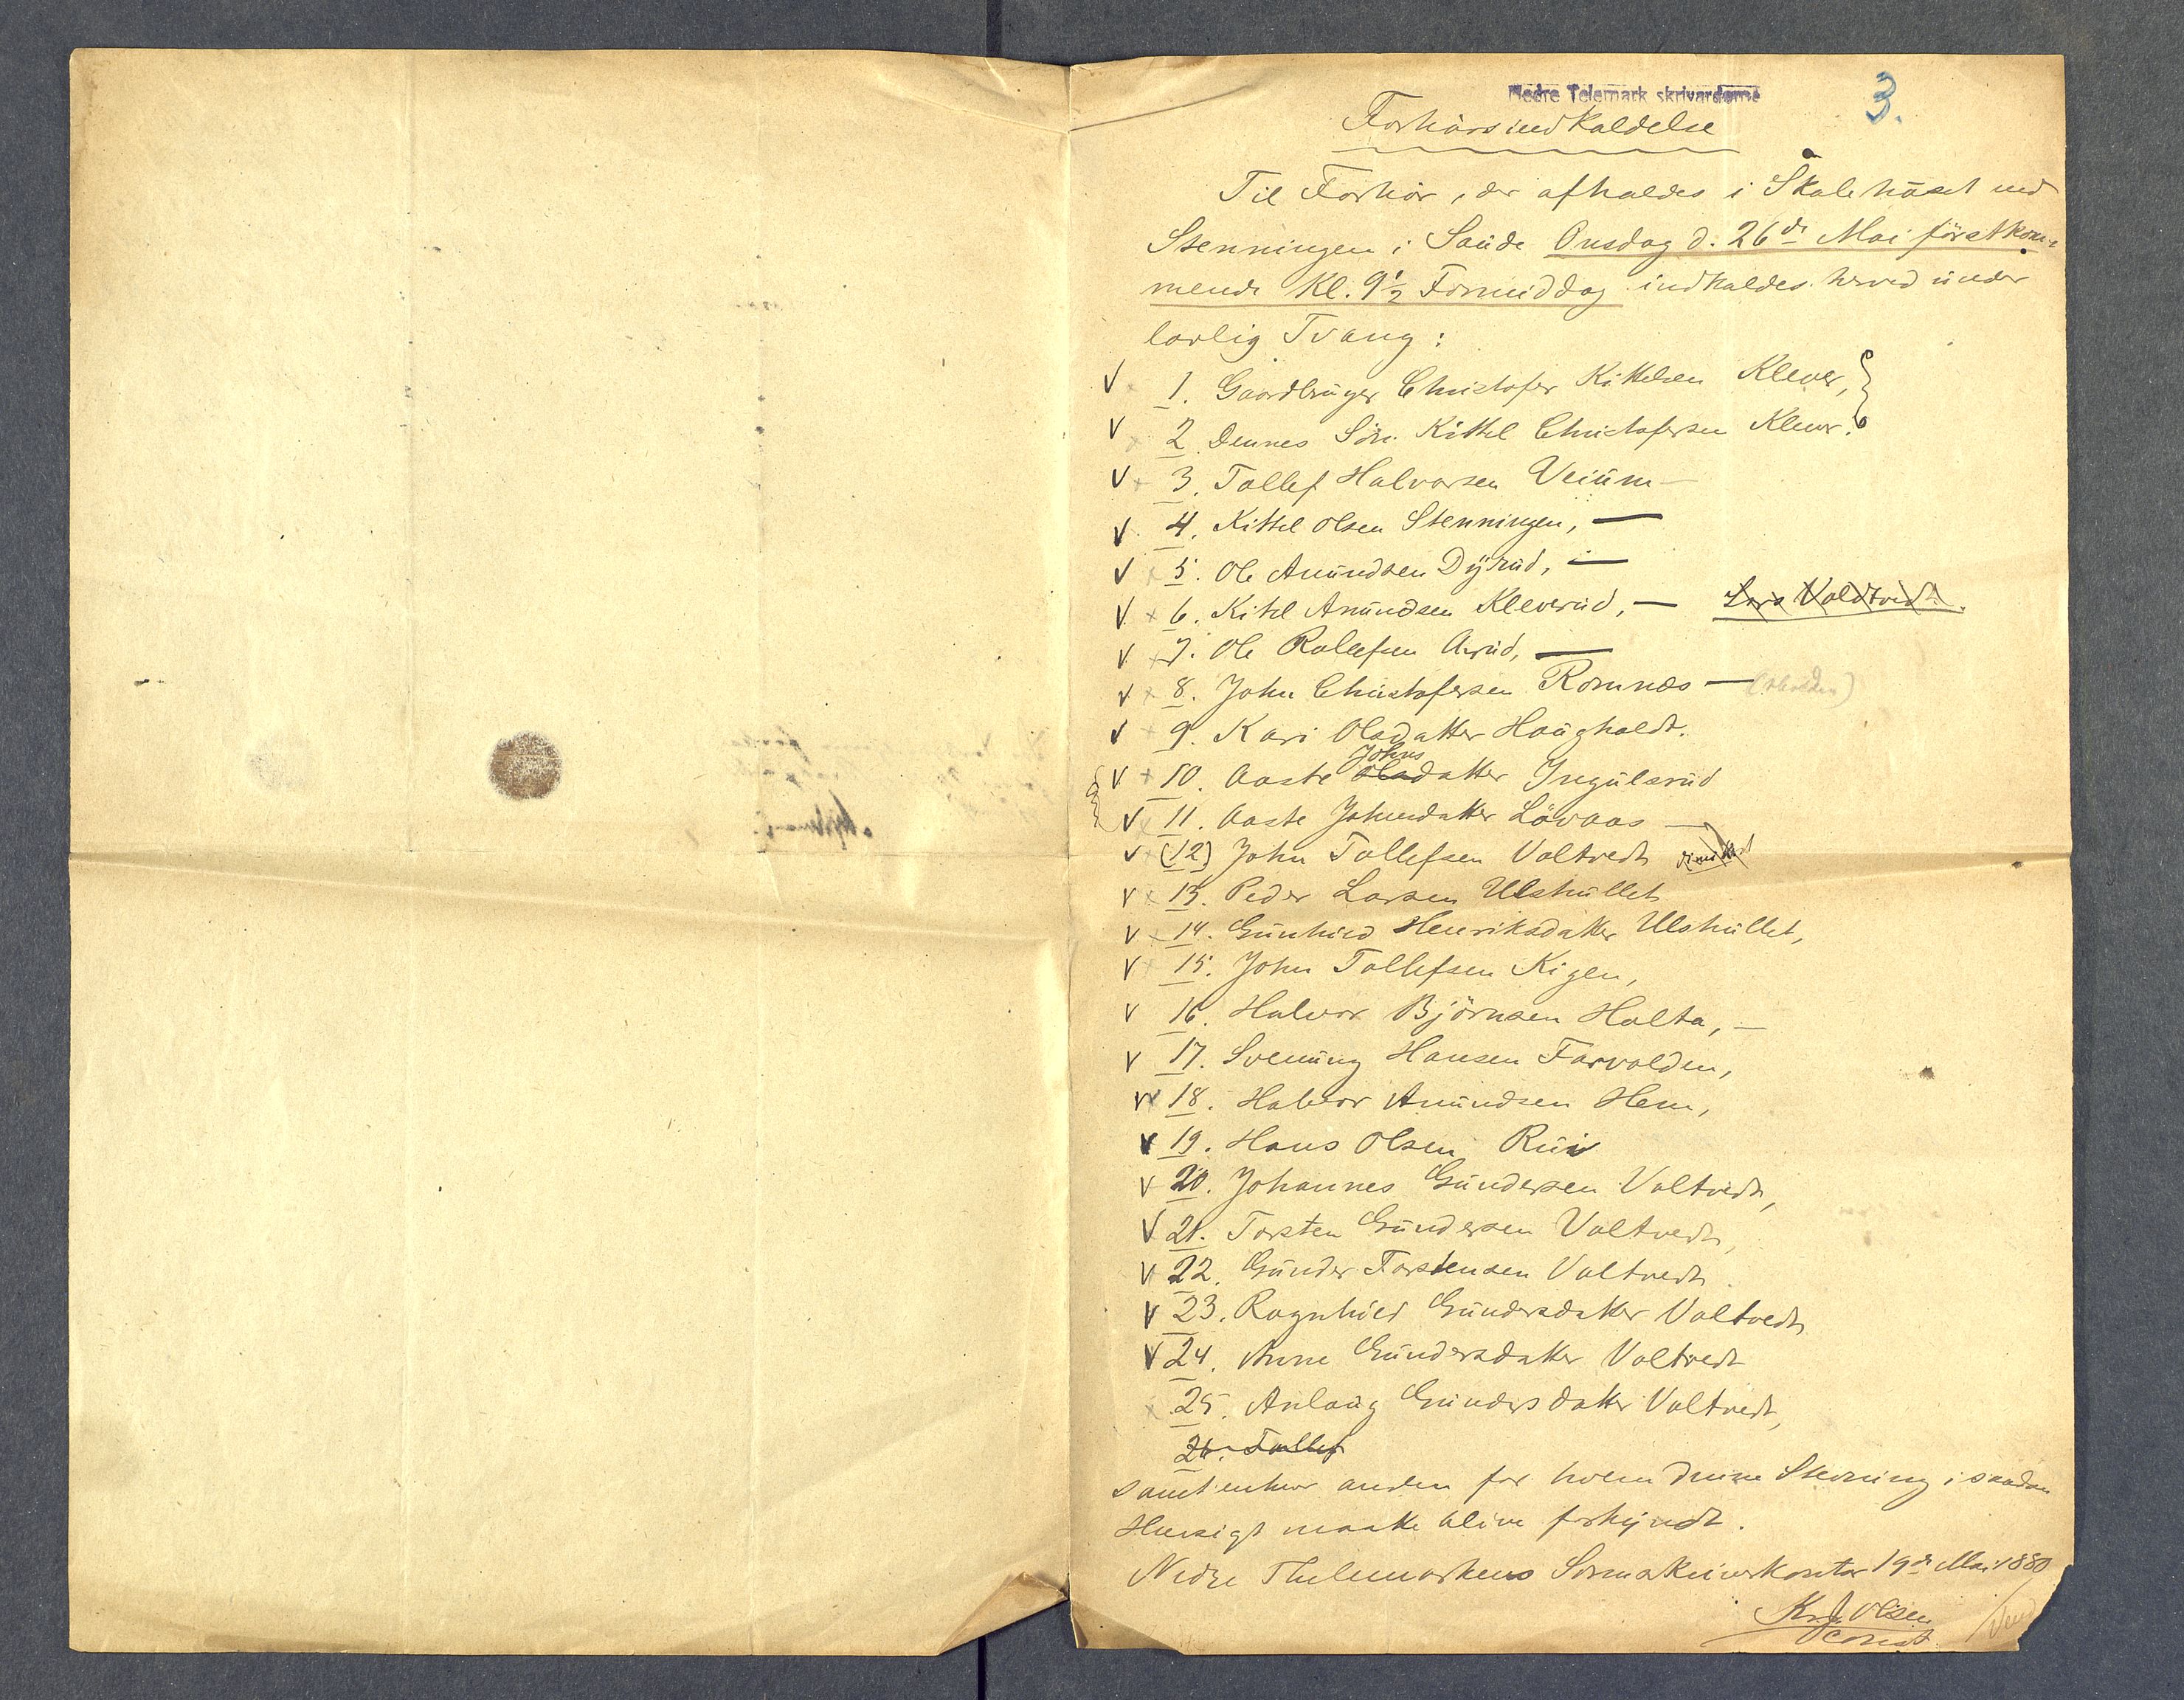 Nedre Telemark skrivardøme
3.
Forhørsindkaldelse
Til Forhør, der afholdes i Skolehüset ved
Stenningen i Saüde Onsdag d. 26de Mai förstkom-
mende Kl. 9½ Formiddag indkaldes herved ünder
lovlig Tvang:
1. Gaardbrüger Christofer Kittelsen Klever,
2. Dennes Sön Kittel Christofersen Klever.
3. Tollef Halvorsen Veiüm —
4. Kittel Olsen Stenningen, —
5. Ole Amündsen Dÿrüd, —
6. Kitel Amündsen Kleverüd, — Lars Valdtvedt.
7. Ole Rollefsen Aarüd, —
8. John Christofersen Romnæs —
9. Kari Olsdatter Haügholdt.
Johns
10. Aaste Olsdatter Ingülsrüd
11. Aaste Johnsdatter Lövaas —
(12) John Tollefsen Valtvedt
13. Peder Larsen Ulshüllet
14. Günhild Henriksdatter Ulshüllet,
15. John Tollefsen Kigen,
16. Halvor Björnsen Holta, —
17. Svenüng Hansen Farvolden,
18. Halvor Amündsen Hem,
19. Hans Olsen Rüi
20. Johannes Gündersen Valtvedt,
21. Torsten Gündersen Valtvedt,
22. Günder Torstensen Valtvedt.
23. Ragnhild Gündersdatter Valtvedt
24. Anne Gündersdatter Valtvedt
25. Anlaüg Gündersdatter Valtvedt,
26. Tollef
samt enhver anden for hvem denne Stevning i saadan
Hensigt maatte blive forkÿndt.
Nedre Thelemarkens Sorenskriverkontor 19de Mai 1880
Kr. J. Olsen
const.